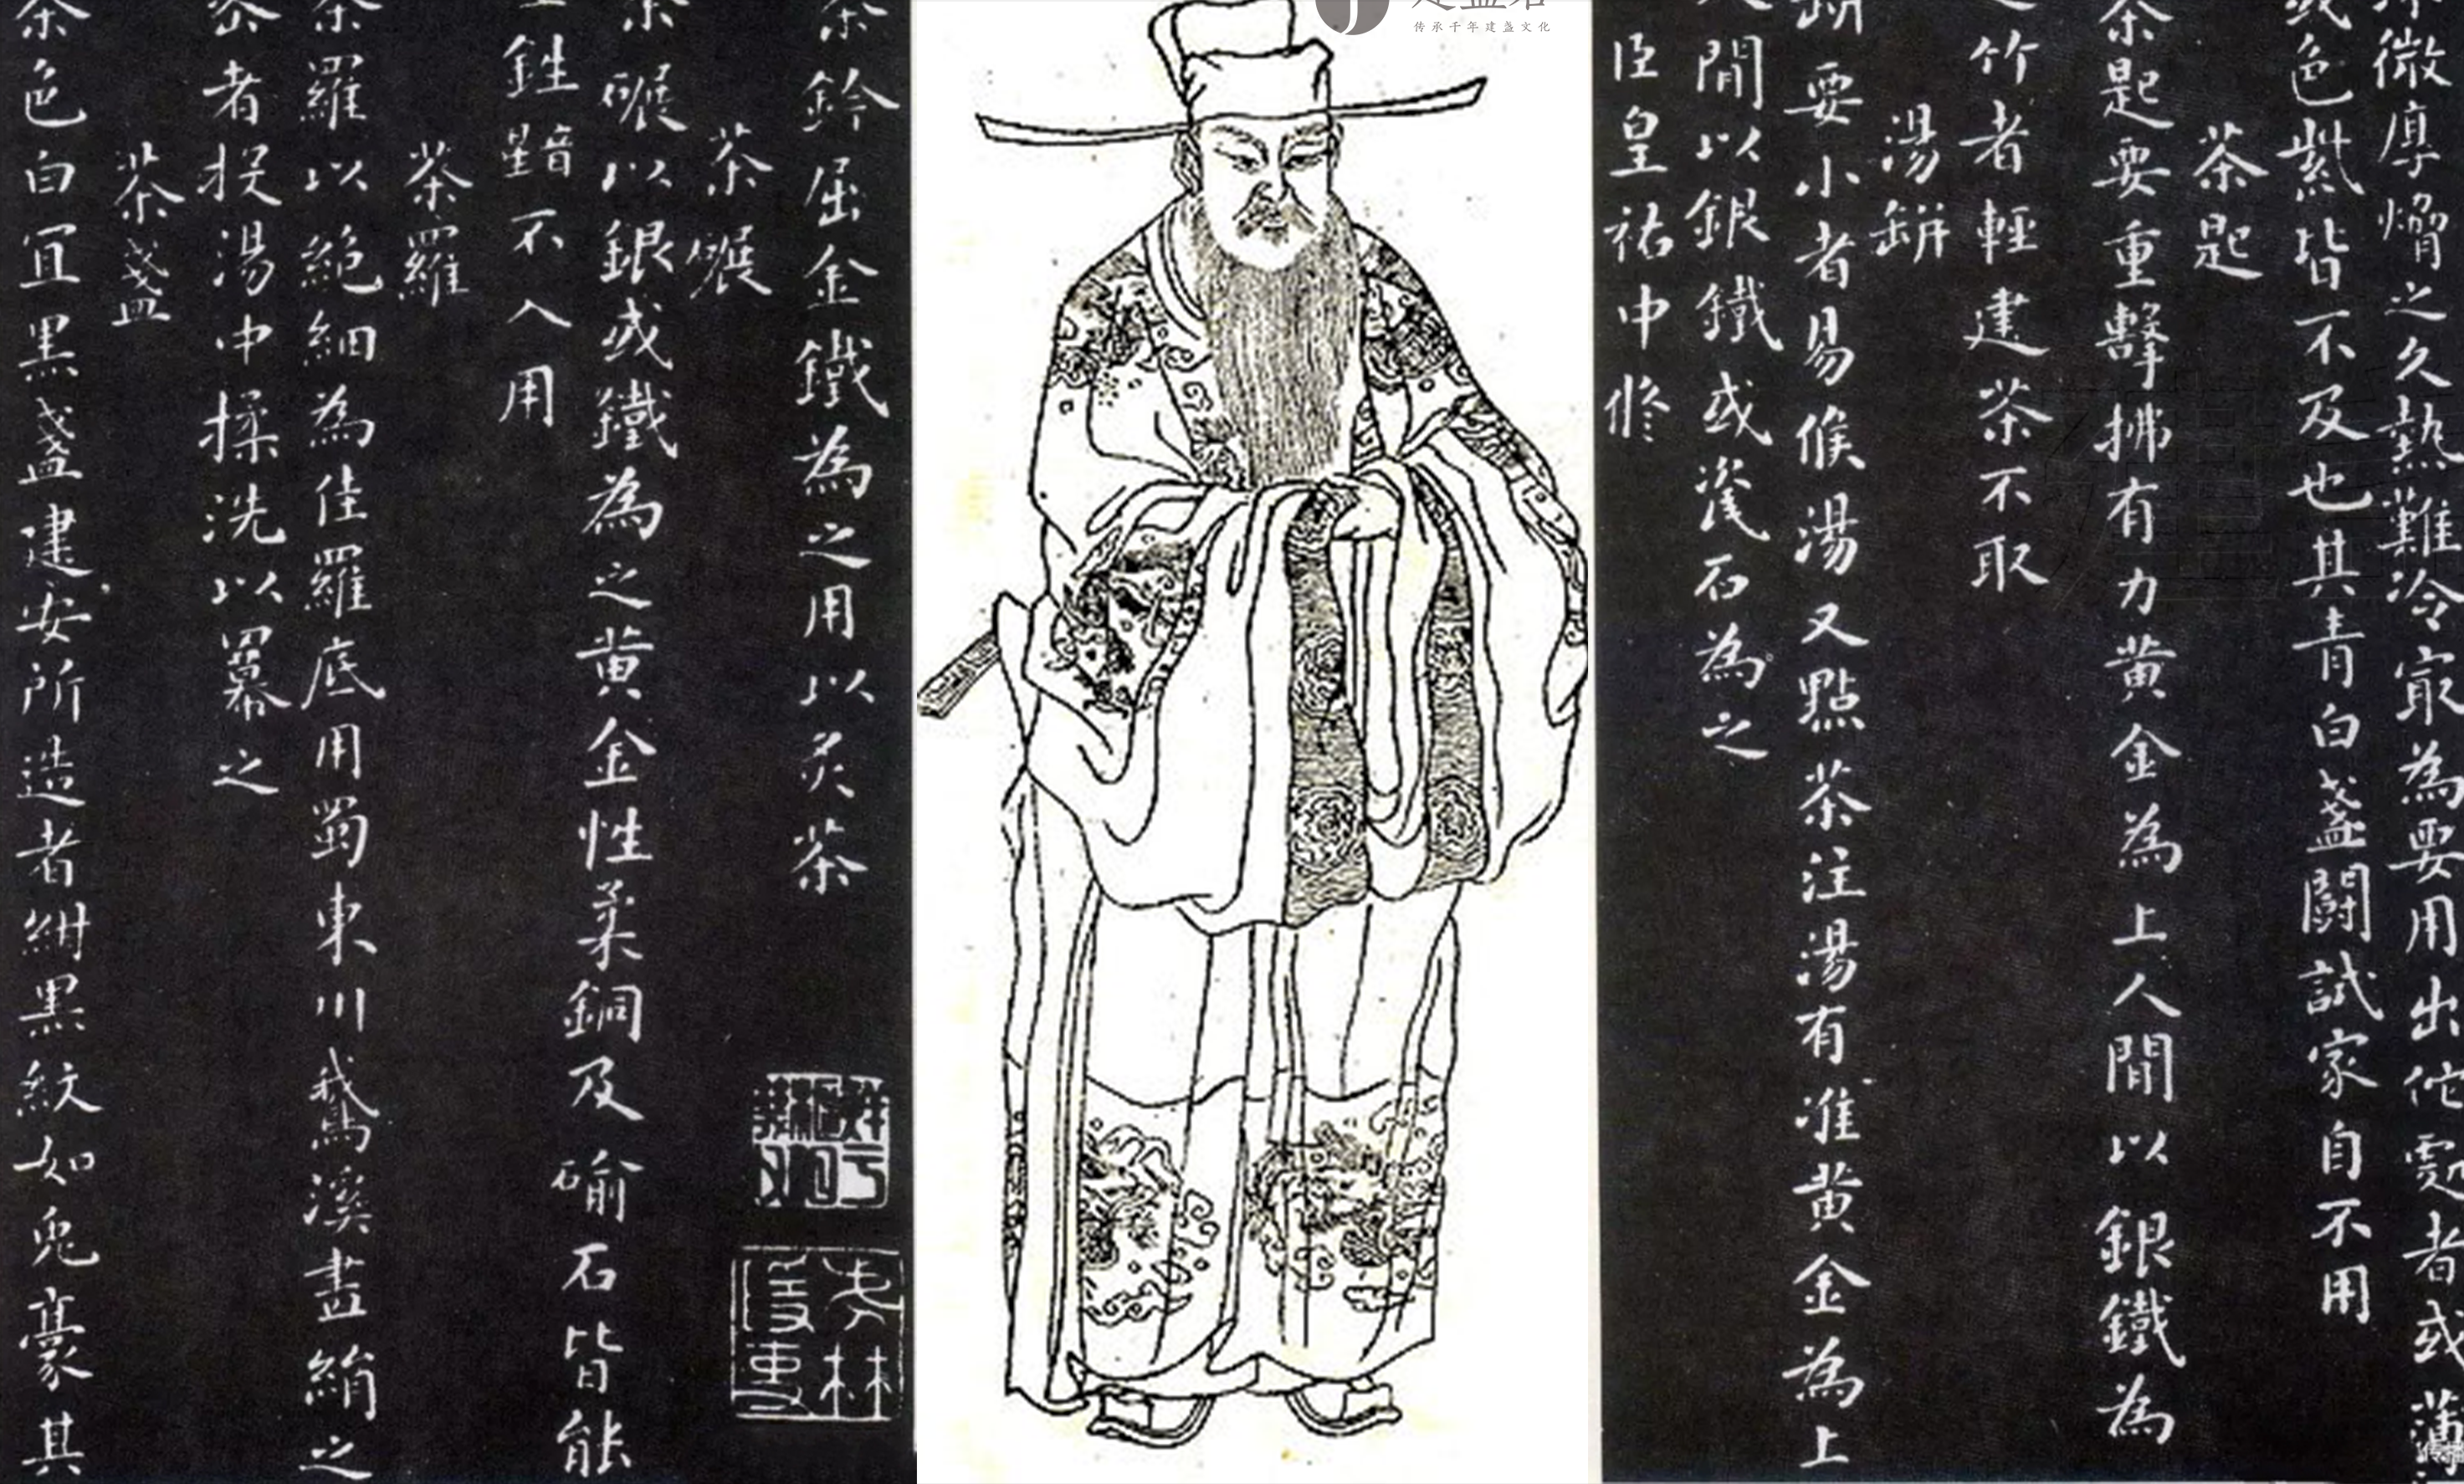 传承千年建盏文化
茶鈐屈金鐵為之用以炙茶
茶碾
茶碾以銀或鐵為之黃金性柔銅及碖石皆能
鉎黯不入用
茶羅
茶羅以絕細為佳羅底用蜀東川鵝溪畫絹之
密者投湯中揉洗以羃之
茶盞
茶色白宜黑盞建安所造者紺黑紋如兔毫其
坯微厚熁之久熱難冷最為要用出佗處者或薄
或色紫皆不及也其青白盞鬬試家自不用
茶匙
茶匙要重擊拂有力黃金為上人間以銀鐵為
之竹者輕建茶不取
湯缾
缾要小者易候湯又點茶注湯有准黃金為上
人間以銀鐵或瓷石為之
臣皇祐中修